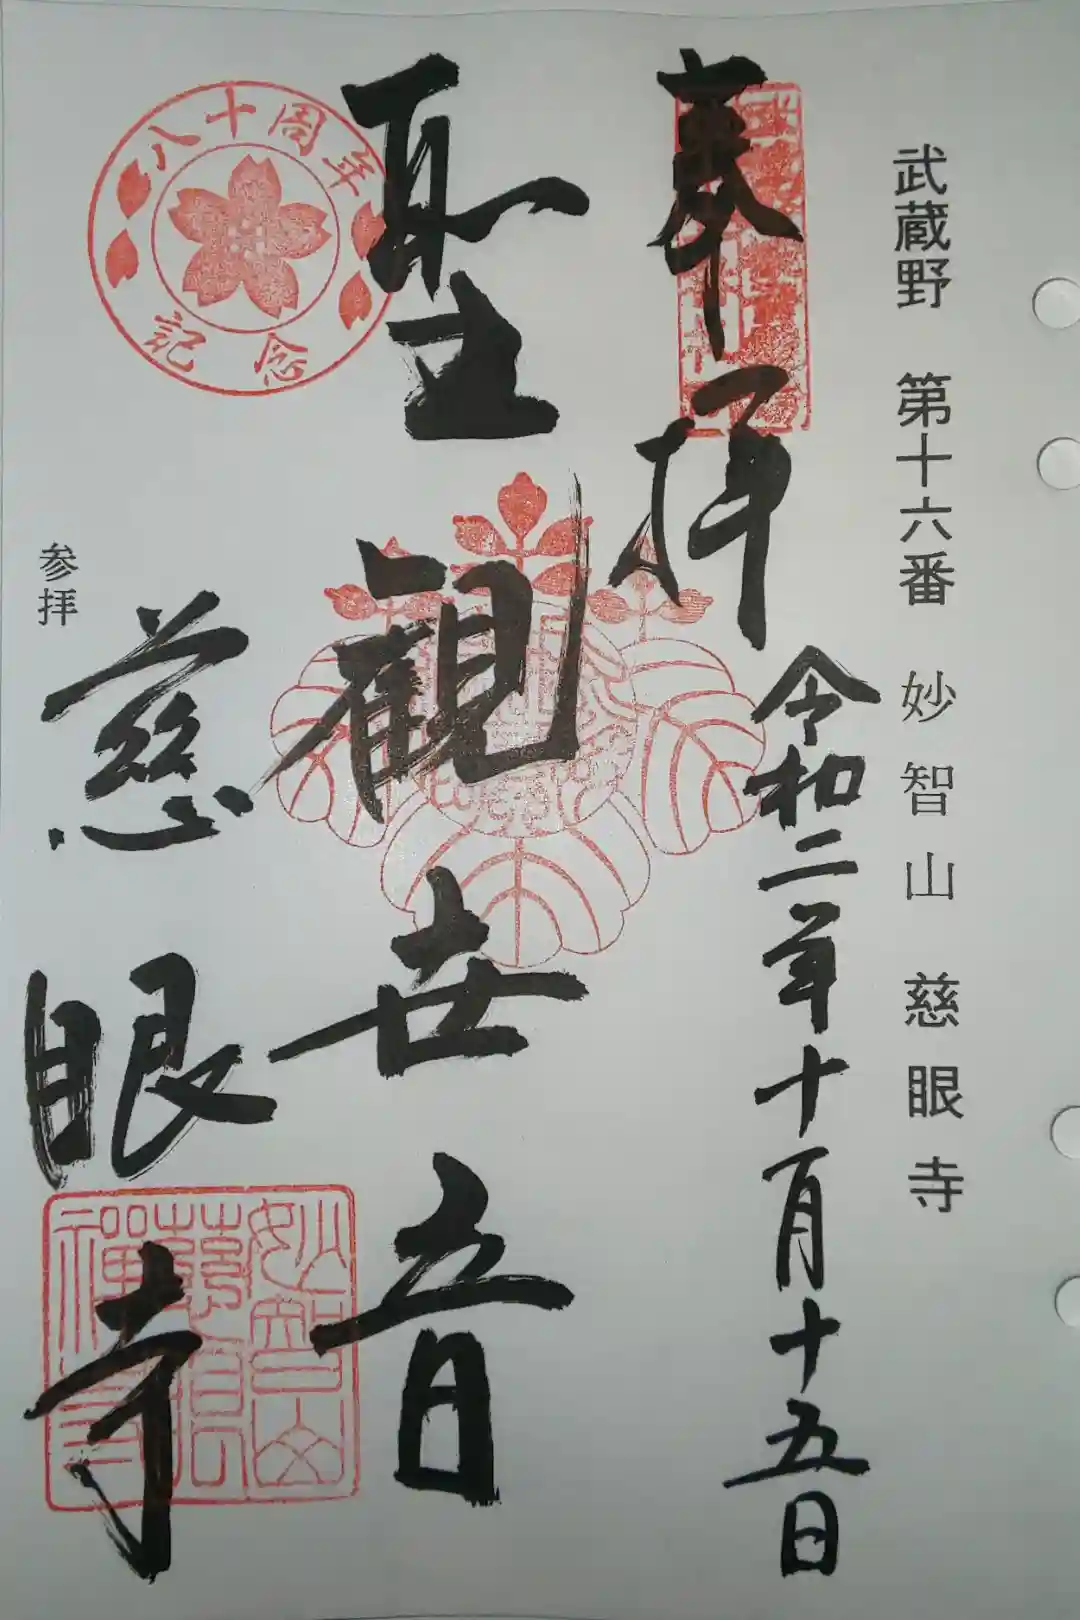 武蔵野 第十六番 妙智山 慈眼寺
奉拝 令和二年十月十五日
聖観世音
慈眼寺
参拝
八十周年
記念
妙智山
慈眼
禅寺